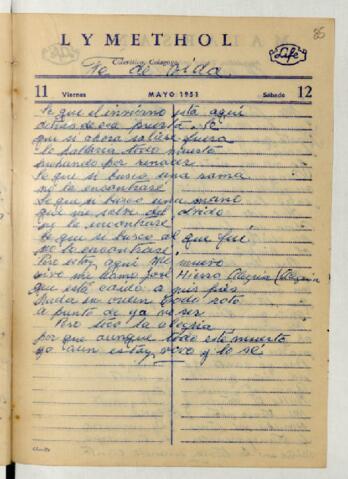 85
LYMETHOL
Life
Colerético, Colagogo
Fe de vida
11 Viernes MAYO 1951 Sábado 12
Sé que el invierno está aquí
detrás de esa puerta. Sé
que si ahora saliese fuera
lo hallaría todo muerto
luchando por renacer.
Sé que si busco una rama
no la encontraré
Sé que si busco una mano
que me salve del olvido
no la encontraré
Sé que si busco al que fui
no lo encontraré
Pero estoy aquí. Me muevo
vivo me llamo José Hierro Alegría (Alegría
que está caída a mis pies
Nada en orden todo roto
a punto de ya no ser
Pero toco la alegría
por que aunque todo esté muerto
yo aun estoy vivo y lo sé